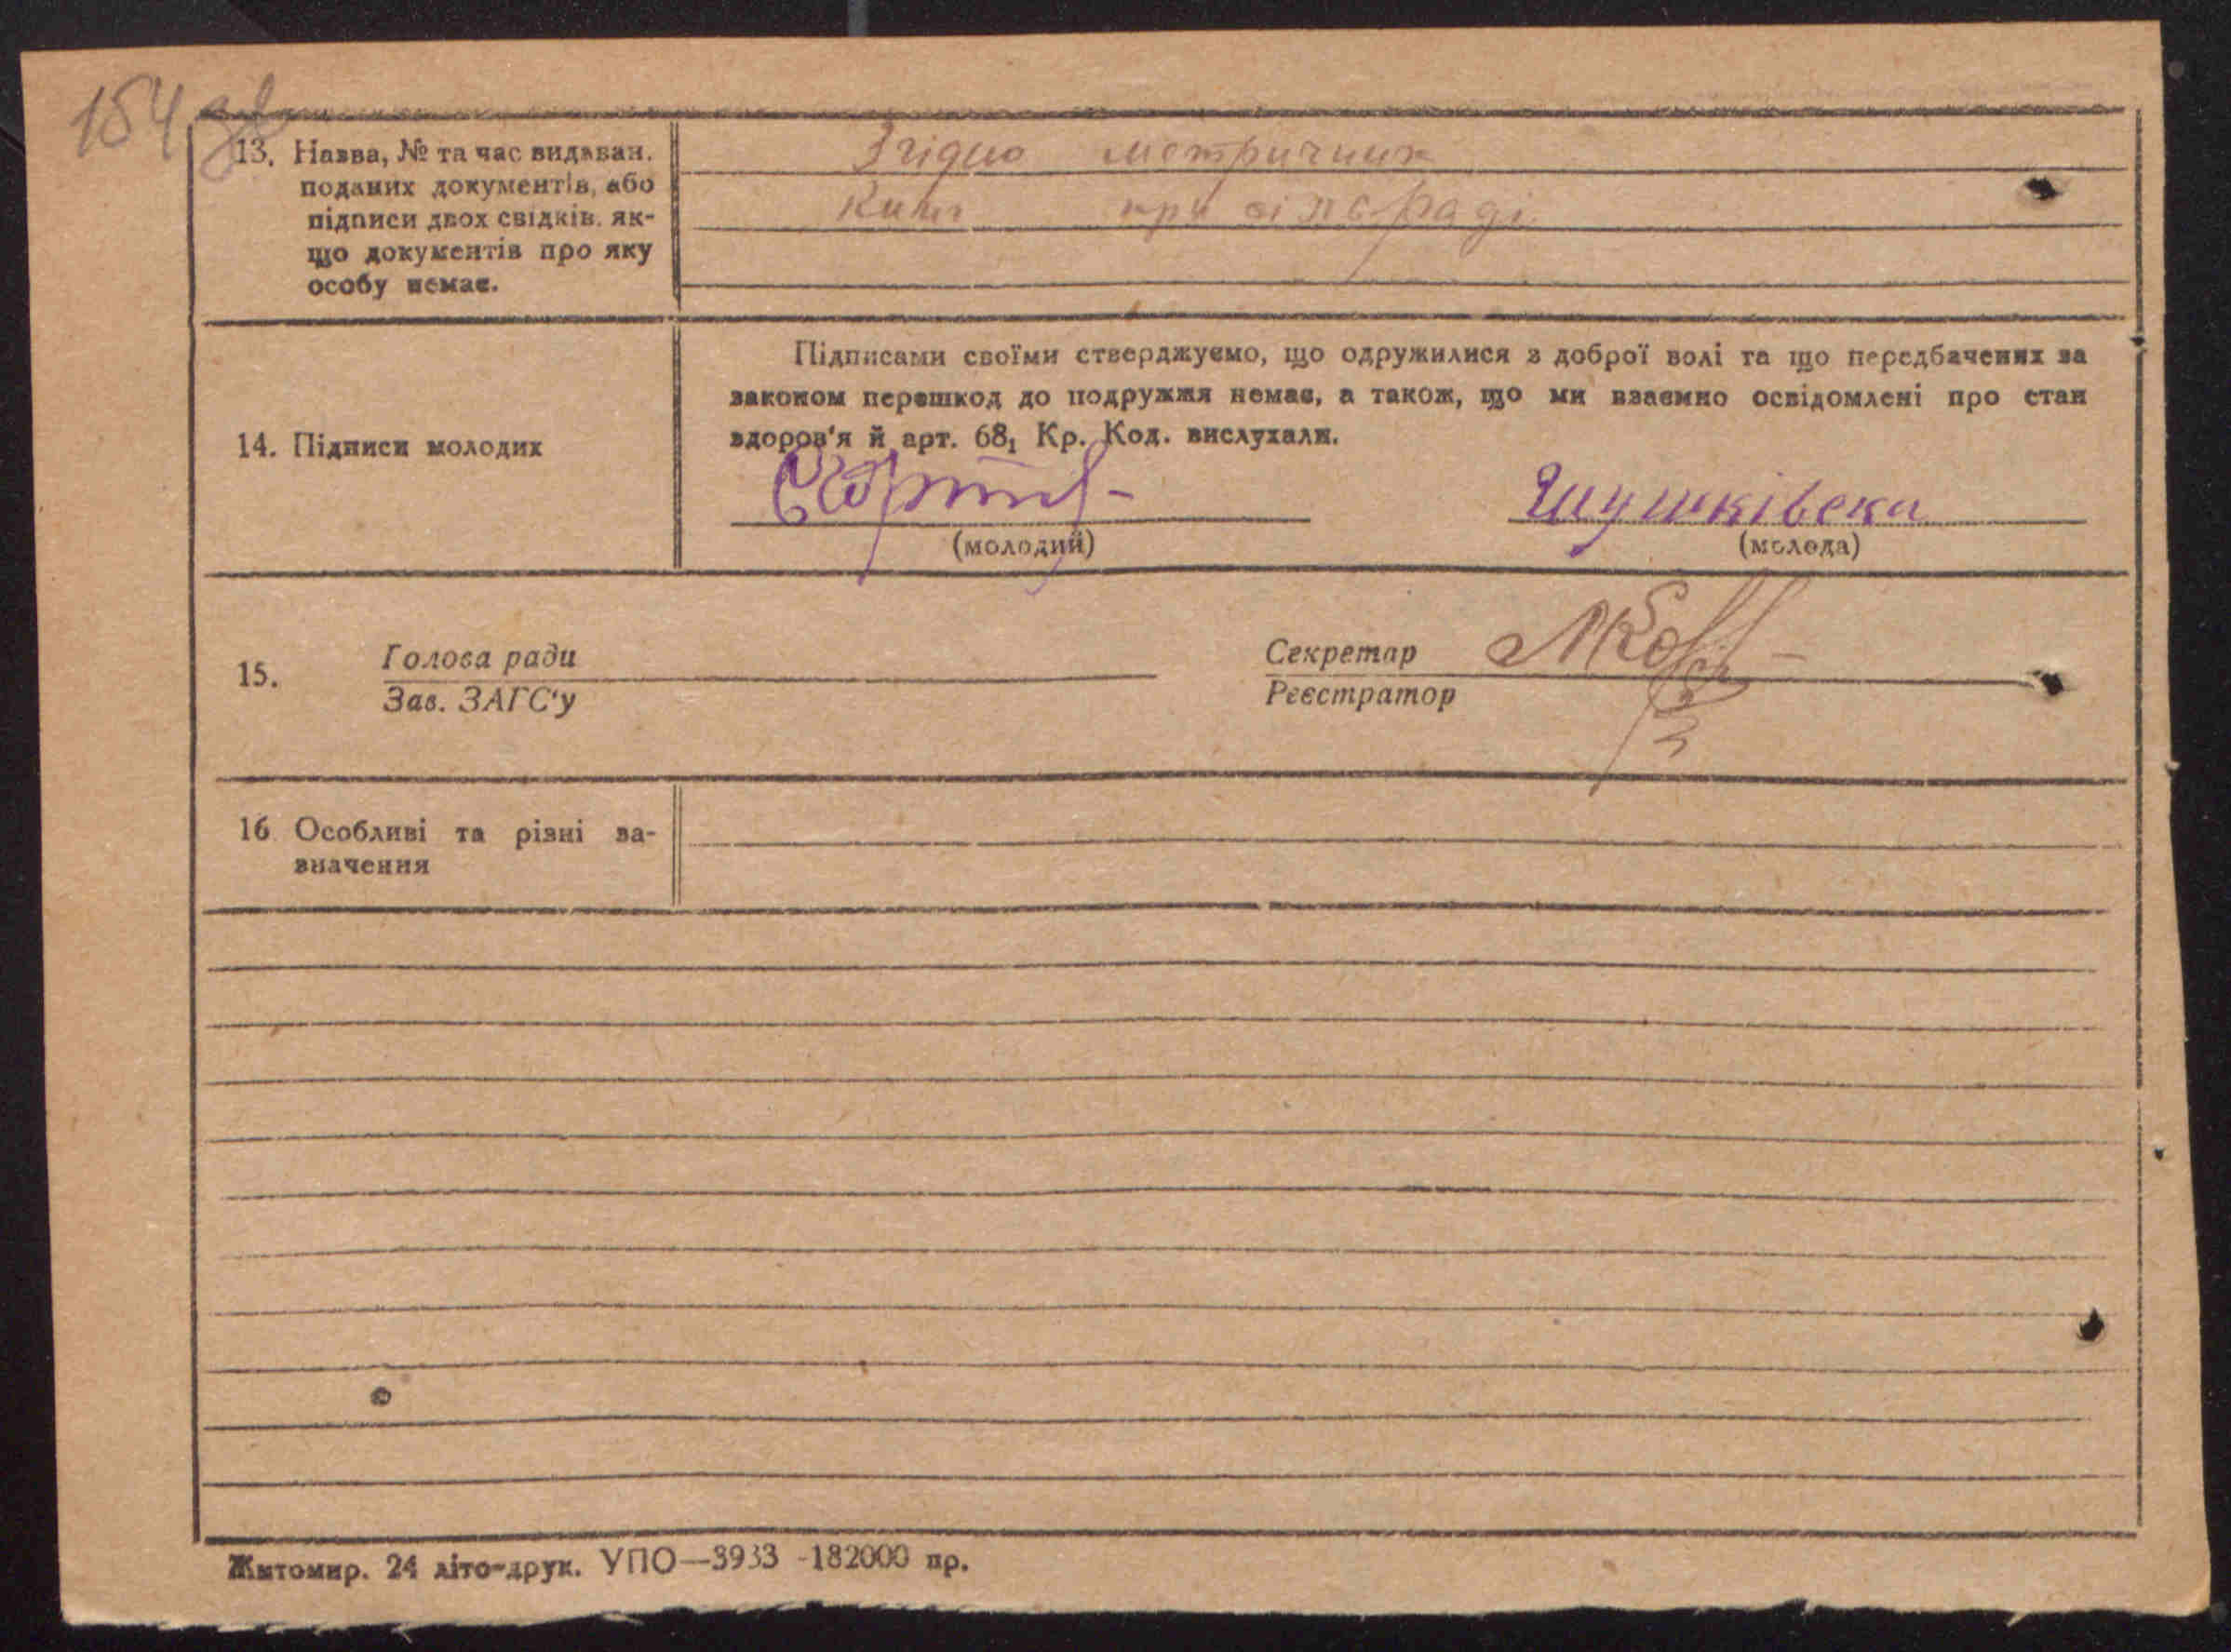 154 зв
13. Назва, № та час видаван.
поданих документів, або
підписи двох свідків, як-
що документів про яку
особу немає.
Згідно метричних
книг при сільраді
14. Підписи молодих
Підписами своїми стверджуємо, що одружилися з доброї волі та що передбачених за
законом перешкод до подружжя немає, а також, що ми взаємно освідомлені про стан
здоров'я й арт. 68₁ Кр. Код. вислухали.
Шушківска
(молодий) (молода)
15. Голова ради
Зав. ЗАГС'у
Секретар
Реєстратор
16 Особливі та різні за-
значення
Житомир. 24 літо-друк. УПО—3933 -182000 пр.